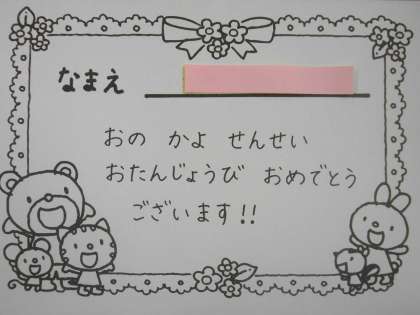 なまえ
おの かよ せんせい
おたんじょうび おめでとう
ございます!!